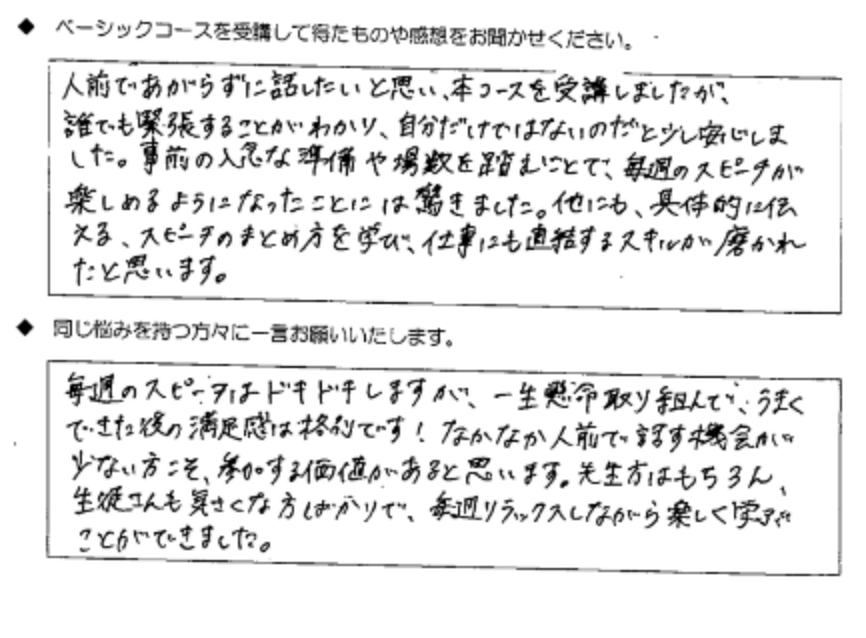 ◆ ベーシックコースを受講して得たものや感想をお聞かせください。
人前であがらずに話したいと思い、本コースを受講しましたが、
誰でも緊張することがわかり、自分だけではないのだと少し安心しま
した。事前の入念な準備や場数を踏むことで、毎週のスピーチが
楽しめるようになったことには驚きました。他にも、具体的に伝
える、スピーチのまとめ方を学び、仕事にも直結するスキルが磨かれ
たと思います。
◆ 同じ悩みを持つ方々に一言お願いいたします。
毎週のスピーチはドキドキしますが、一生懸命取り組んで、うまく
できた後の満足感は格別です！なかなか人前で話す機会が
少ない方こそ、参加する価値があると思います。先生方はもちろん、
生徒さんも気さくな方ばかりで、毎週リラックスしながら楽しく学ぶ
ことができました。